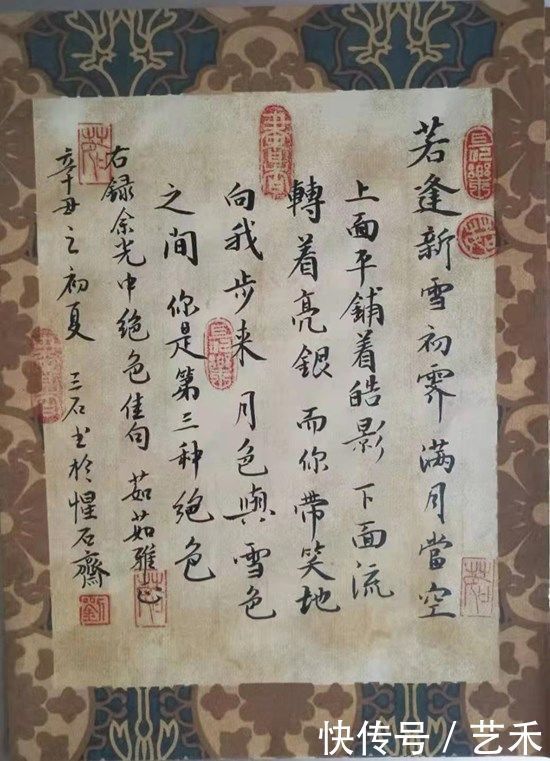 若逢新雪初霽滿月當空
上面平鋪着皓影下面流
轉着亮銀而你带笑地
向我步来月色與雪色
之间你是第三种绝色
右録余光中绝色佳句茹茹雅正
辛丑之初夏三石书於惺石齋
快传号/艺禾